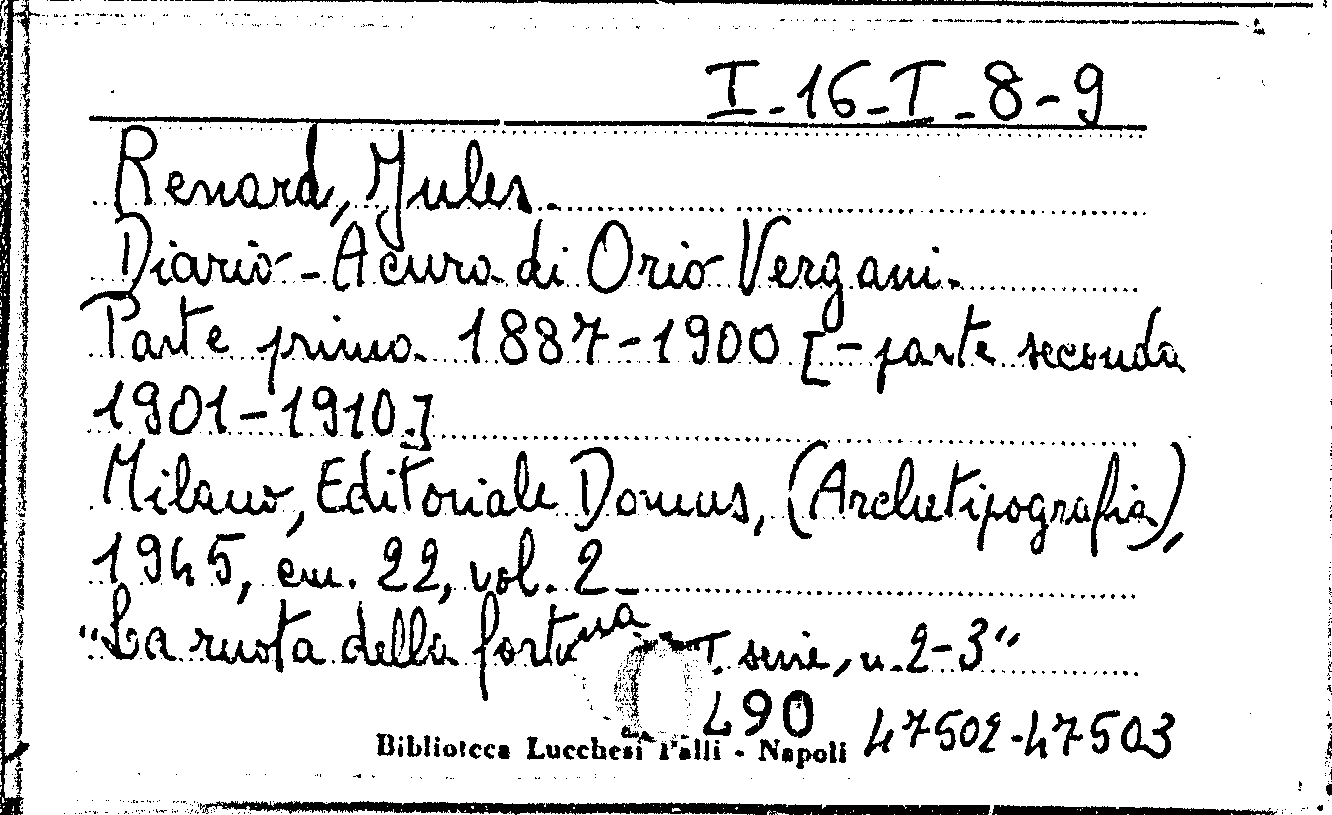 I-16-I-8-9
Renard, Jules.
Diario - A cura di Orio Vergani.
Parte prima 1887-1900 [- parte seconda
1901-1910.]
Milano, Editoriale Domus, (Archetipografia),
1945, cm. 22, vol. 2_
"La ruota della fortuna I. serie, n. 2-3"
490 47502-47503
Biblioteca Lucchesi Palli - Napoli